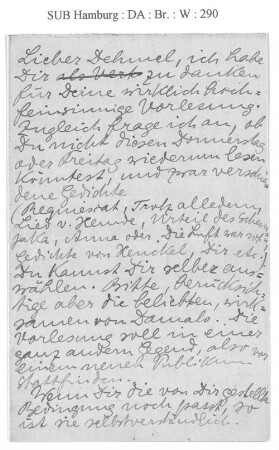 SUB Hamburg : DA : Br. : W : 290
Lieber Dehmel, ich habe
Dir als Vert zu danken
für Deine wirklich hoch-
feinsinnige Vorlesung.
Zugleich frage ich an, ob
Du nicht diesen Donnerstag
oder Freitag wiederum lesen
könntest? und zwar verschie-
dene Gedichte.
Trotz alledem,
Lied v. Hemde, Urteil des
Anna oder: Die Luft war
Gedichte von Henckel, Dir etc.
Du kannst Dir selber aus-
wählen. Bitte, berücksich-
tige aber die beliebten, wirk-
samen von Damals. Die
Vorlesung soll in einer
ganz andern Gegend, also vor
einem neuen Publikum
stattfinden.
Wenn Dir die von Dir gestellte
Bedingung noch passt, so
ist sie selbstverständlich.